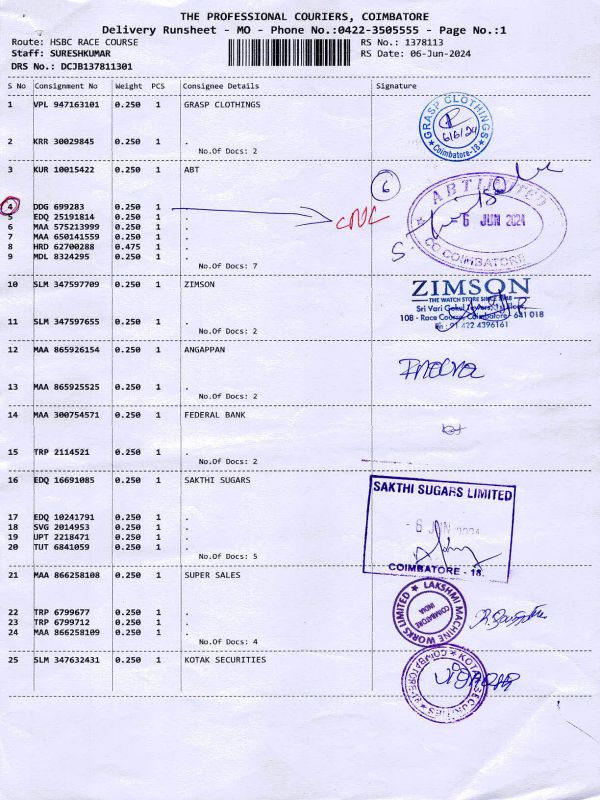 THE PROFESSIONAL COURIERS, COIMBATORE
Delivery Runsheet - MO - Phone No.:0422-3505555 - Page No.:1
Route: HSBC RACE COURSE
RS No.: 1378113
Staff: SURESHKUMAR
RS Date: 06-Jun-2024
DRS No.: DCJB137811301
S No Consignment No Weight PCS Consignee Details Signature
1 VPL 947163101 0.250 1 GRASP CLOTHINGS
GRASP CLOTHINGS
6/6/24
Coimbatore-18
2 KRR 30029845 0.250 1 .
No.Of Docs: 2
3 KUR 10015422 0.250 1 ABT
6
4 DDG 699283 0.250 1 .
5 EDQ 25191814 0.250 1 .
6 MAA 575213999 0.250 1 .
7 MAA 650141559 0.250 1 .
8 HRD 62700288 0.475 1 .
9 MDL 8324295 0.250 1 .
No.Of Docs: 7
ABT LIMITED
6 JUN 2024
COIMBATORE
10 SLM 347597709 0.250 1 ZIMSON
ZIMSON
THE WATCH STORE SINCE 1948
Sri Vari Gokul Towers, 1st Floor,
108 - Race Course, Coimbatore - 641 018
Ph : 91 422 4396161
11 SLM 347597655 0.250 1 .
No.Of Docs: 2
12 MAA 865926154 0.250 1 ANGAPPAN
13 MAA 865925525 0.250 1 .
No.Of Docs: 2
14 MAA 300754571 0.250 1 FEDERAL BANK
15 TRP 2114521 0.250 1 .
No.Of Docs: 2
16 EDQ 16691085 0.250 1 SAKTHI SUGARS
SAKTHI SUGARS LIMITED
- 6 JUN 2024
COIMBATORE - 18.
17 EDQ 10241791 0.250 1 .
18 SVG 2014953 0.250 1 .
19 UPT 2218471 0.250 1 .
20 TUT 6841059 0.250 1 .
No.Of Docs: 5
21 MAA 866258108 0.250 1 SUPER SALES
LAKSHMI MACHINE WORKS LIMITED
COIMBATORE
INDIA
22 TRP 6799677 0.250 1 .
23 TRP 6799712 0.250 1 .
24 MAA 866258109 0.250 1 .
No.Of Docs: 4
25 SLM 347632431 0.250 1 KOTAK SECURITIES
KOTAK SECURITIES
COIMBATORE-18